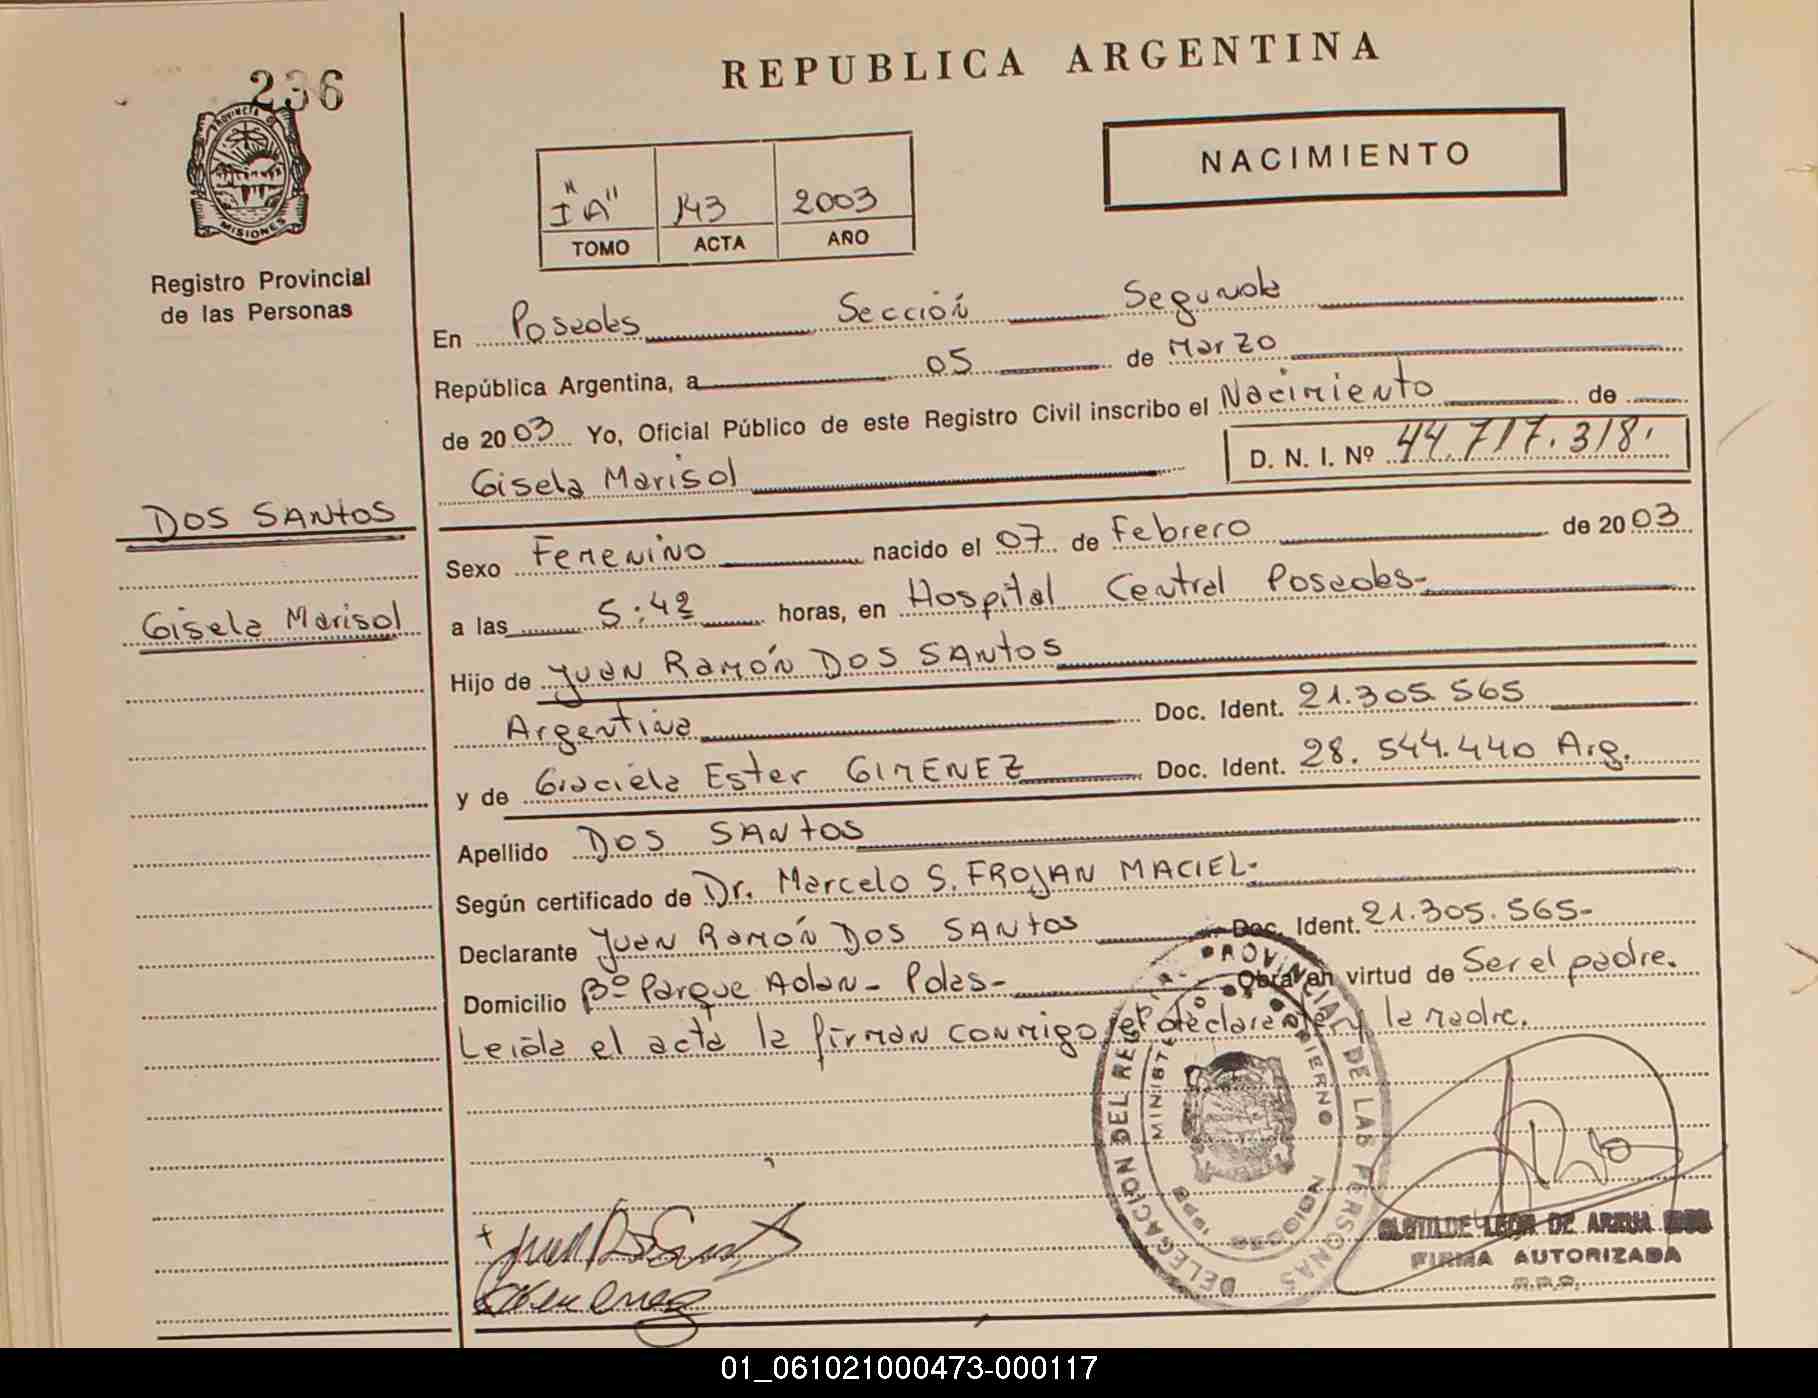 236
PROVINCIA DE
MISIONES
Registro Provincial
de las Personas
DOS SANTOS
Gisela Marisol
REPUBLICA ARGENTINA
NACIMIENTO
"IA" 143 2003
TOMO ACTA AÑO
En Posadas Sección Segunda
República Argentina, a 05 de Marzo
de 2003 Yo, Oficial Público de este Registro Civil inscribo el Nacimiento de
Gisela Marisol D. N. I. Nº 44.717.318.
Sexo Femenino nacido el 07 de Febrero de 2003
a las 5:42 horas, en Hospital Central Posadas-
Hijo de Juan Ramón DOS SANTOS
Argentina Doc. Ident. 21.305.565
y de Graciela Ester GIMENEZ Doc. Ident. 28.544.440 Arg.
Apellido DOS SANTOS
Según certificado de Dr. Marcelo S. FROJAN MACIEL-
Declarante Juan Ramón DOS SANTOS Doc. Ident. 21.305.565-
Domicilio Bº Parque Adam - Pdas- Obra en virtud de Ser el padre.
Leída el acta la firman conmigo el declarante y la madre.
DELEGACION DEL REGISTR. PROVINCIAL DE LAS PERSONAS
MINISTERIO DE GOBIERNO
MISIONES
FIRMA AUTORIZADA
R.P.P.
01_061021000473-000117